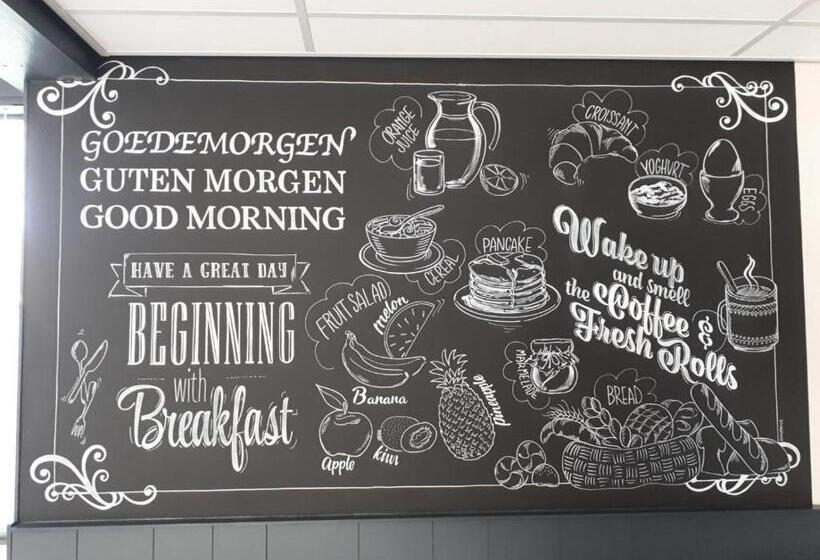 GOEDEMORGEN
GUTEN MORGEN
GOOD MORNING
HAVE A GREAT DAY
BEGINNING
with
Breakfast
ORANGE
JUICE
CROISSANT
YOGHURT
EGGS
CEREAL
PANCAKE
Wake up
and smell
the Coffee &
Fresh Rolls
FRUIT SALAD
melon
Banana
Apple
kiwi
pineapple
MARMELADE
BREAD